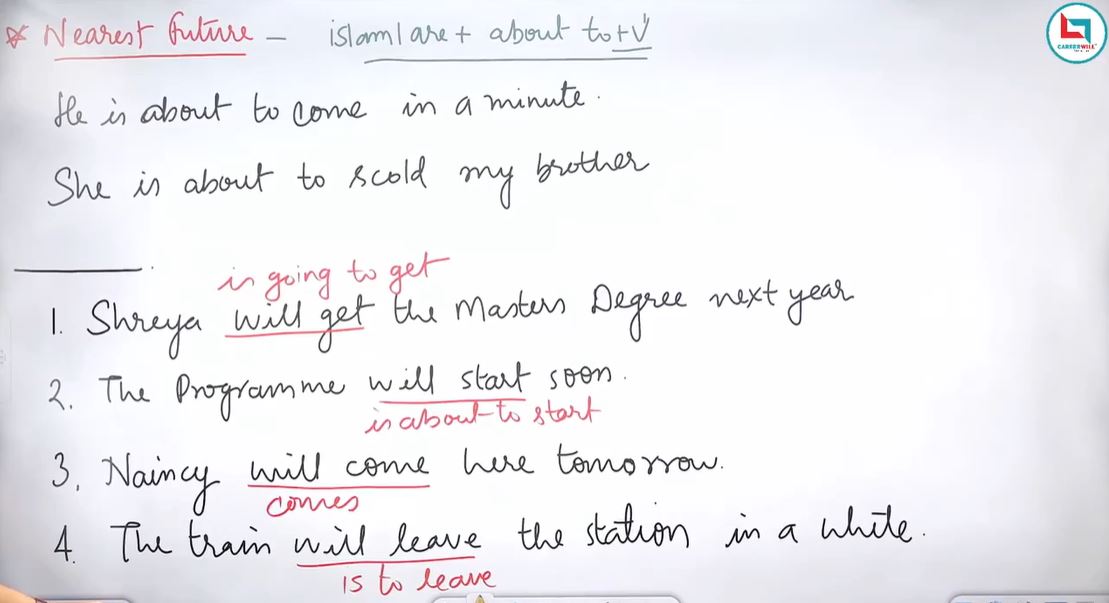 * Nearest future – is|am|are + about to + V¹
CAREERWILL
He is about to come in a minute.
She is about to scold my brother
is going to get
1. Shreya will get the Masters Degree next year
2. The Programme will start soon.
is about to start
3. Naincy will come here tomorrow.
comes
4. The train will leave the station in a white.
is to leave